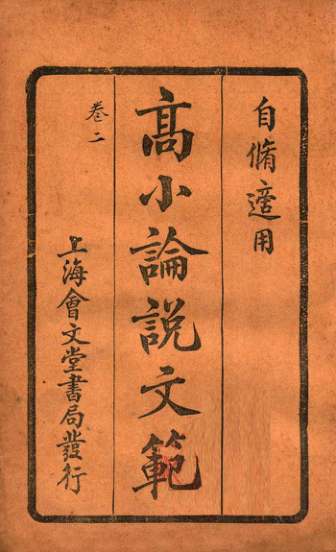 自脩適用
高小論說文範
卷二
上海會文堂書局發行